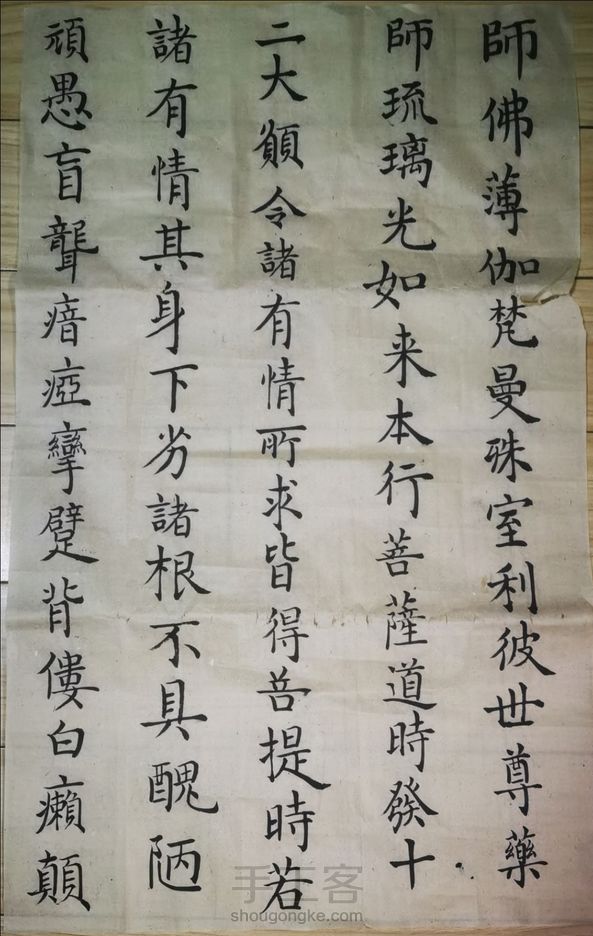 師佛薄伽梵曼殊室利彼世尊藥
師琉璃光如来本行菩薩道時發十
二大願令諸有情所求皆得菩提時若
諸有情其身下劣諸根不具醜陋
頑愚盲聾瘖瘂攣躄背僂白癩顛
手工客
shougongke.com